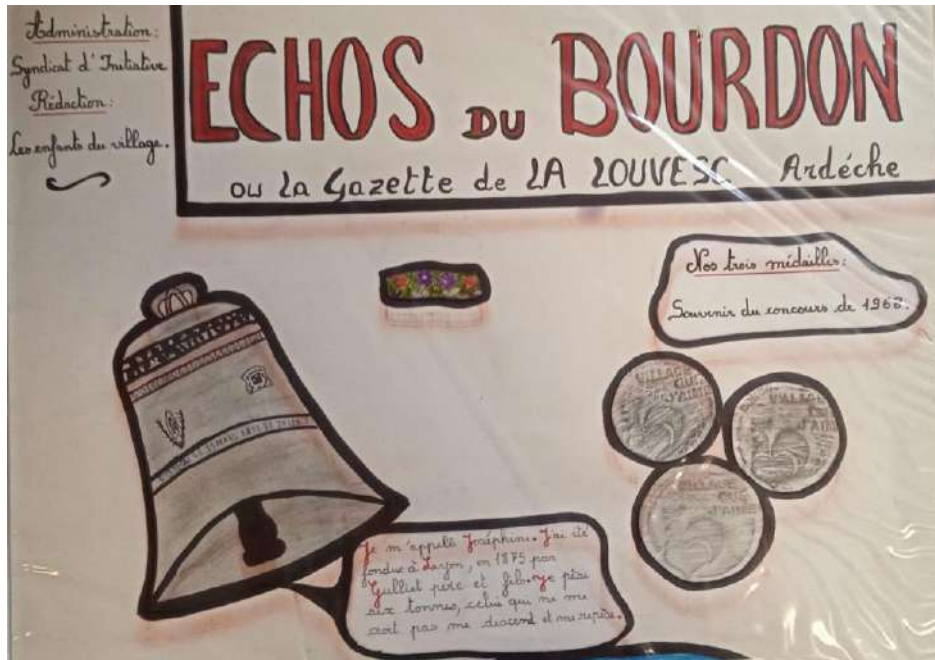 Administration:
Syndicat d'Initiative
Rédaction:
Les enfants du village.
ECHOS DU BOURDON
ou La Gazette de LA LOUVESC Ardéche
Nos trois médailles:
Souvenir du concours de 1968.
VILLAGE
QUE
J'AIME
VILLAGE
J'AIME
VILLAGE
QUE
J'AIME
Je m'appelle Joséphine. J'ai été
fondue à Lyon, en 1875 par
Gulliet père et fils. Je pèse
six tonnes, celui qui ne me
croit pas me descend et me repèse.